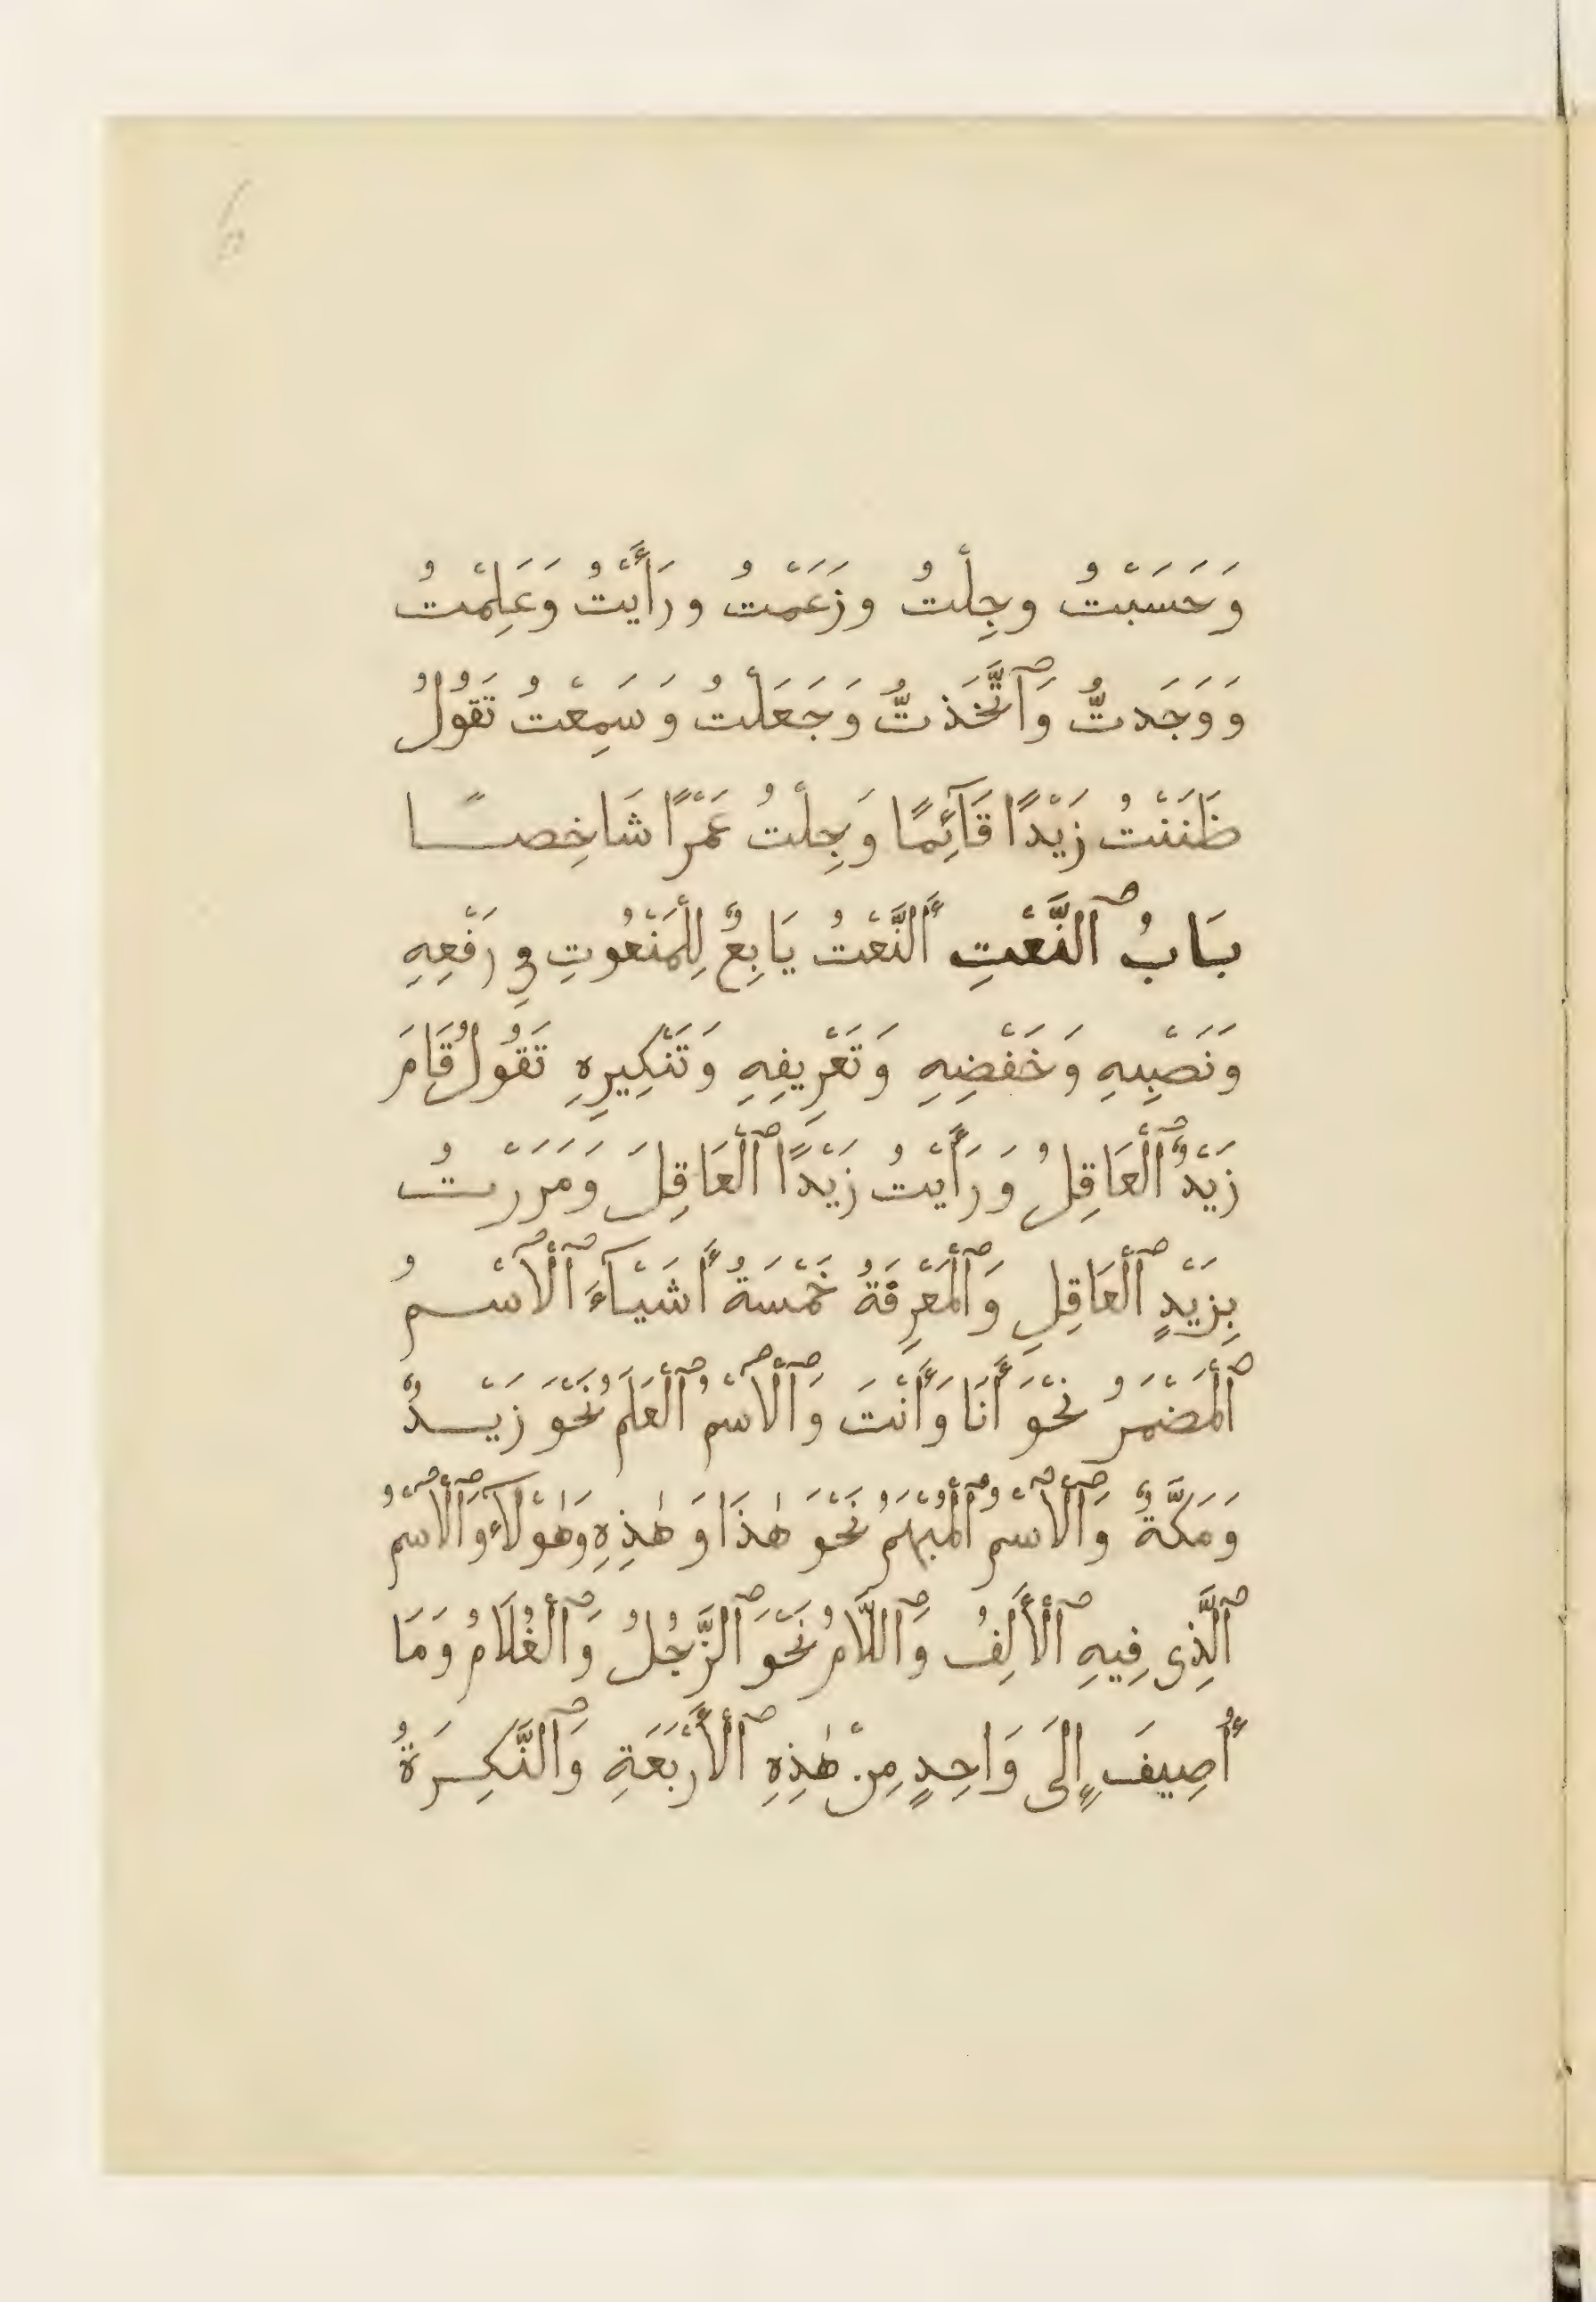 وَحَسَبْتُ وجِلْتُ وزَعَمْتُ ورَأَيْتُ وَعَلِمْتُ
وَوَجَدتُّ وَٱتَّخَذتُّ وَجَعَلْتُ وَسَمِعْتُ تَقُولُ
ظَنَنْتُ زَيْدًا قَآئِمًا وَجِلْتُ عَمْرًا شَاخِصًا
بَابُ ٱلنَّعْتِ أَلنَّعْتُ يَابِعٌ لِلْمَنْعُوتِ فِي رَفْعِهِ
وَنَصْبِهِ وَخَفْضِهِ وَتَعْرِيفِهِ وَتَنْكِيرِهِ تَقُولُ قَامَ
زَيْدٌ ٱلْعَاقِلُ وَرَأَيْتُ زَيْدًا ٱلْعَاقِلَ وَمَرَرْتُ
بِزَيْدٍ ٱلْعَاقِلِ وَٱلْمَعْرِفَةُ خَمْسَةُ أَشْيَآءَ ٱلْاسْمُ
ٱلْمَضْمَرُ نَحْوَ أَنَا وَأَنْتَ وَٱلْاسْمُ ٱلْعَلَمُ نَحْوَ زَيْدٌ
وَمَكَّةٌ وَٱلْاسْمُ ٱلْمُبْهَمُ نَحْوَ هٰذَا وَهٰذِهِ وَهٰوُلَآءِ وَٱلْاسْمُ
ٱلَّذِى فِيهِ ٱلْأَلِفُ وَٱللَّامُ نَحْوَ ٱلرَّجُلُ وَٱلْغُلَامُ وَمَا
أُصِيفَ إِلَى وَاحِدٍ مِنْ هٰذِهِ ٱلْأَرْبَعَةِ وَٱلنَّكِرَةُ